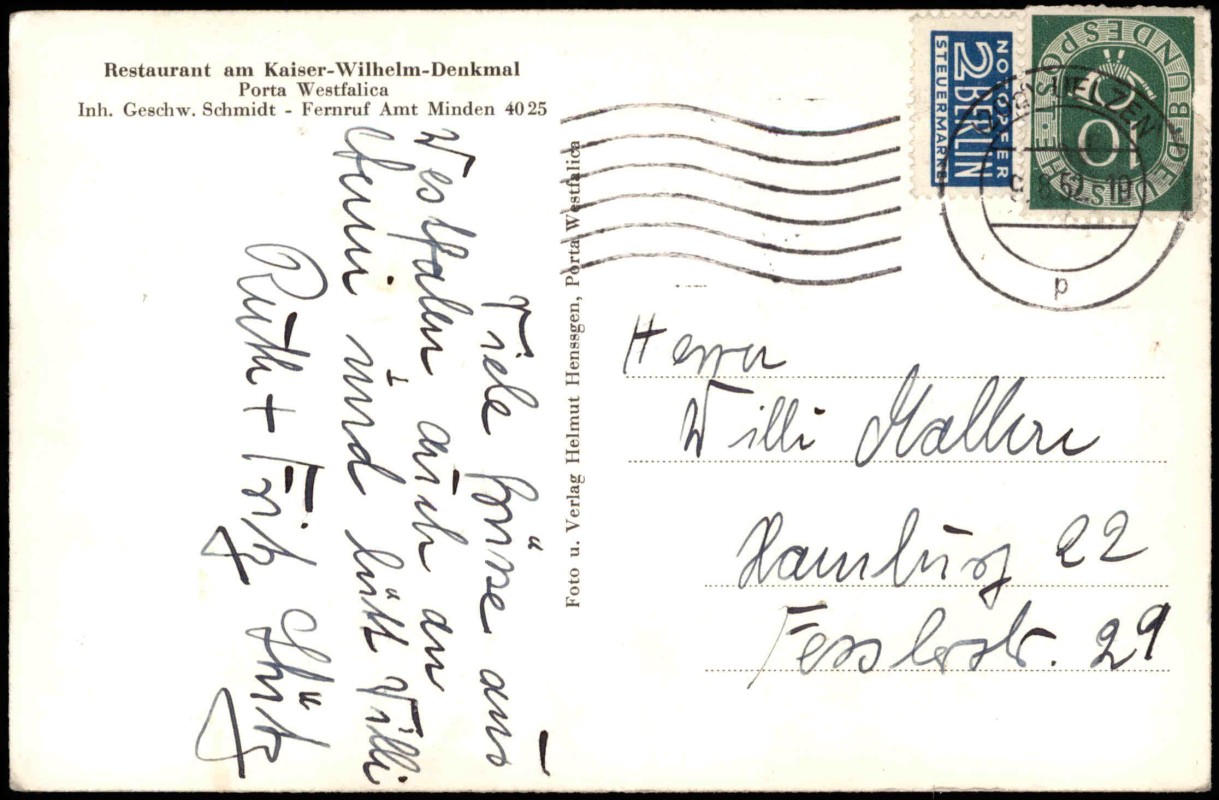 Restaurant am Kaiser-Wilhelm-Denkmal
Porta Westfalica
Inh. Geschw. Schmidt - Fernruf Amt Minden 4025
Viele Grüsse aus
Westfalen auch an
und lütt Willi
Ruth + Fritz
Foto u. Verlag Helmut Henssgen, Porta Westfalica
NOTOPFER
2 BERLIN
STEUERMARKE
DEUTSCHE BUNDESPOST
10
UELZEN
p
Herrn
Willi
Hamburg 22
29